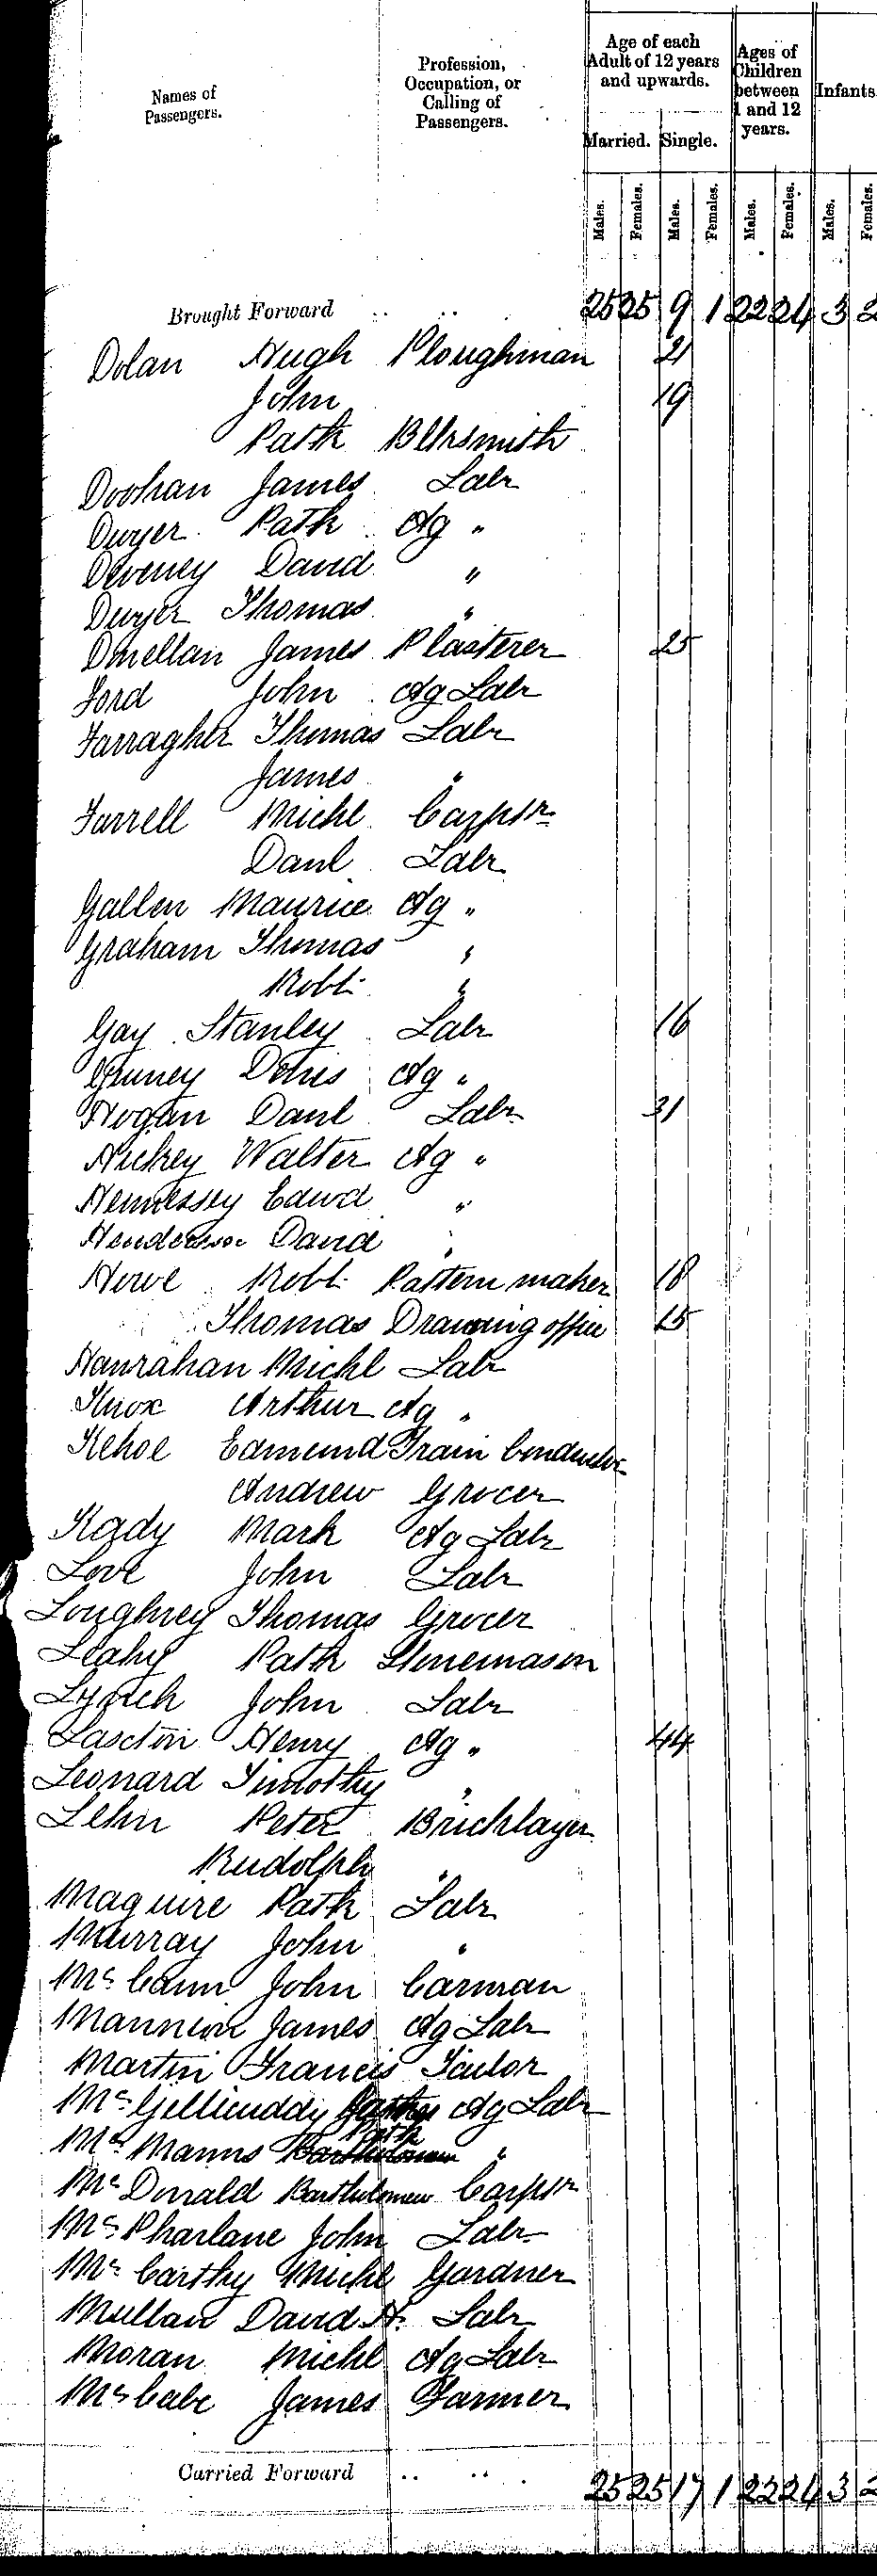 Names of Passengers. Profession, Occupation, or Calling of Passengers. Age of each Adult of 12 years and upwards. Ages of Children between 1 and 12 years. Infants
Married. Single.
Males. Females. Males. Females. Males. Females. Males. Females.
Brought Forward .. .. 25 25 9 1 22 24 3 2
Dolan Hugh Ploughman 21
John 19
Patk Blksmith
Doohan James Labr
Dwyer Patk Ag "
Deveney David "
Dwyer Thomas "
James Plasterer 25
Ford John Ag Labr
Farragher Thomas Labr
James "
Farrell Michl Carpntr
Danl Labr
Gallen Maurice Ag "
Graham Thomas "
Robt "
Gay Stanley Labr 16
Ag "
Hogan Danl Labr 31
Hickey Walter Ag "
Hennessey Edwd "
Henderson David "
Howe Robt Pattern maker 18
Thomas Drawing office 15
Hanrahan Michl Labr
Knox Arthur Ag "
Kehoe Edmund Tram Conductor
Andrew Grocer
Kady Mark Ag Labr
Love John Labr
Loughrey Thomas Grocer
Leahy Patk Stonemason
Lynch John Labr
Henry Ag " 44
Leonard Timothy "
Lehn Peter Bricklayer
Rudolph "
Maguire Patk Labr
Murray John "
McCann John Carman
Mannion James Ag Labr
Martin Francis Tailor
McGillicuddy Ag Labr
McManus Patk "
McDonald Bartholomew Carpntr
McPharlane John Labr
McCarthy Michl Gardner
Mullan David A. Labr
Moran Michl Ag Labr
McCabe James Farmer
Carried Forward .. .. 25 25 17 1 22 24 3 2